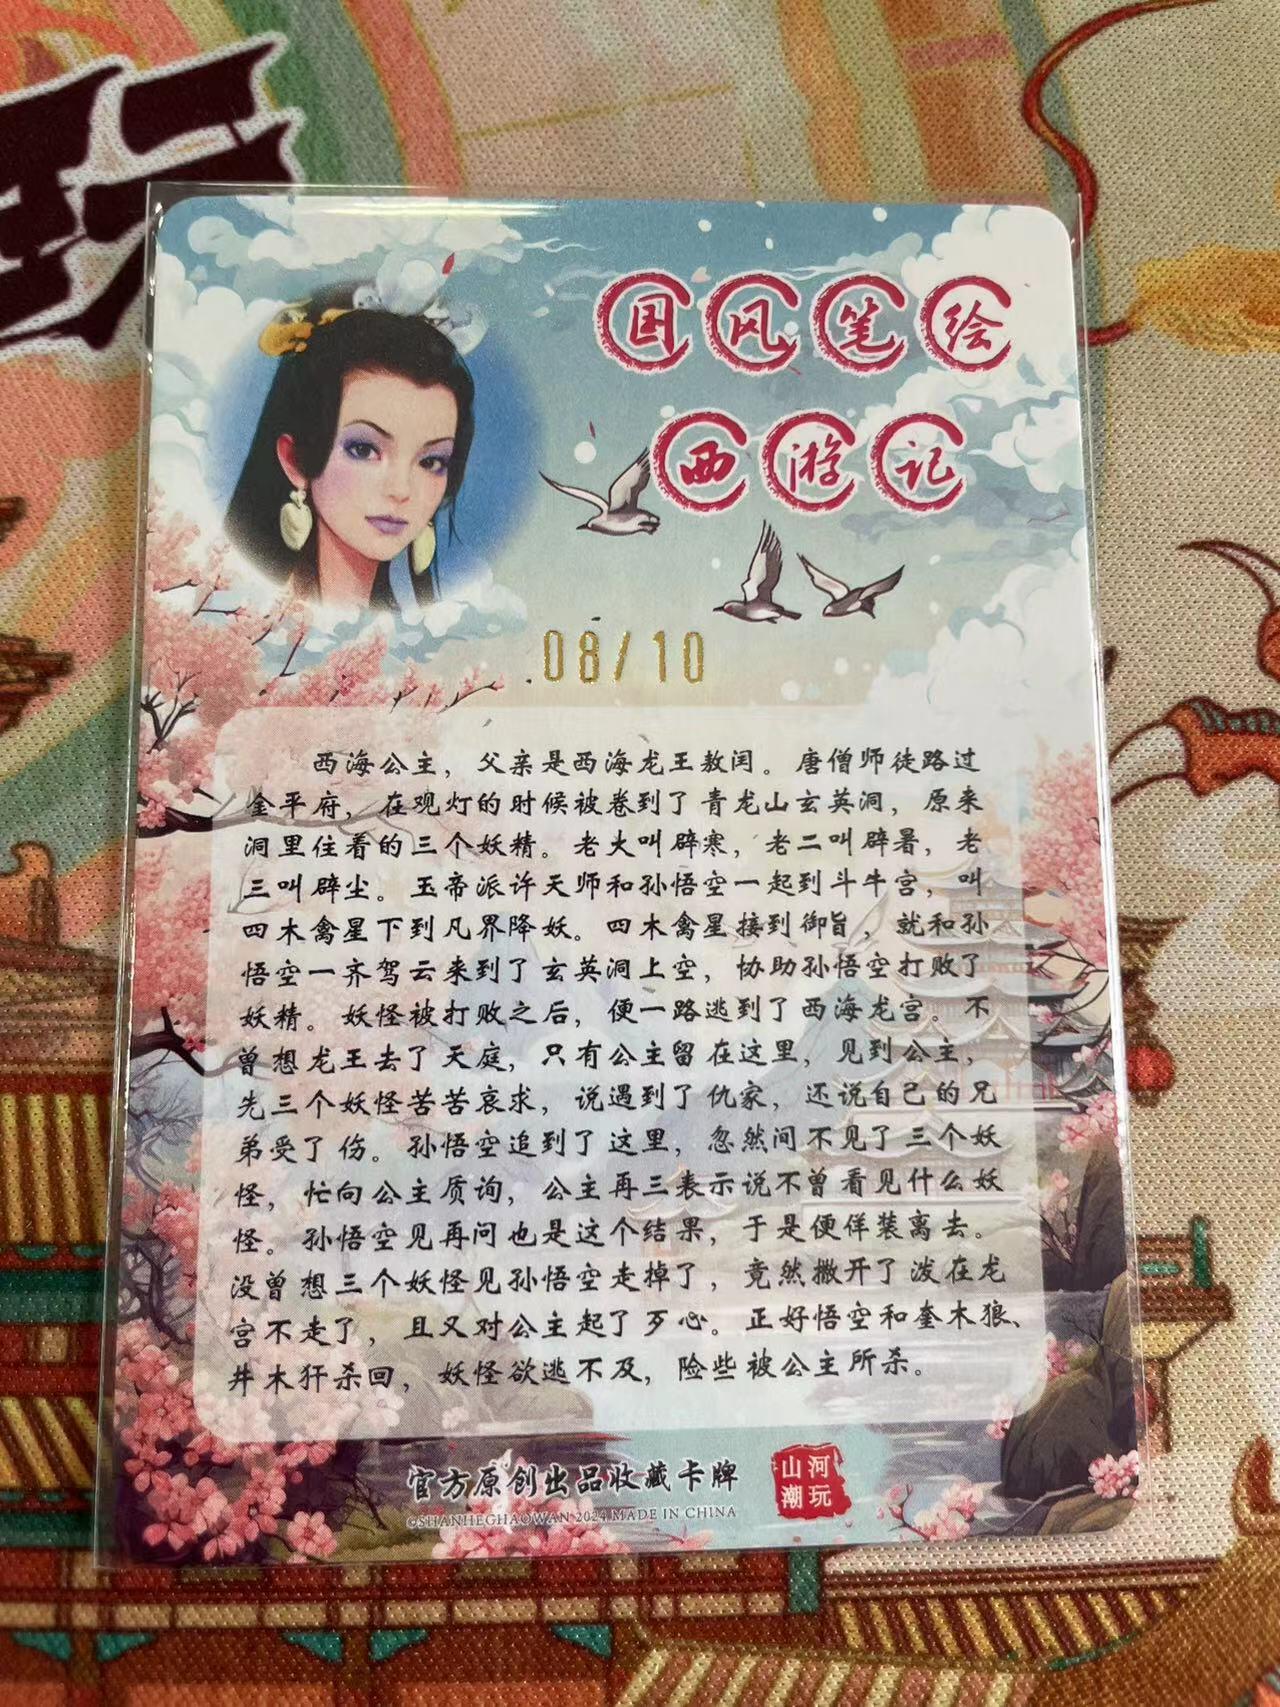 玩
国风笔绘
西游记
08/10
西海公主，父亲是西海龙王敖闰。唐僧师徒路过
金平府，在观灯的时候被卷到了青龙山玄英洞，原来
洞里住着的三个妖精。老大叫辟寒，老二叫辟暑，老
三叫辟尘。玉帝派许天师和孙悟空一起到斗牛宫，叫
四木禽星下到凡界降妖。四木禽星接到御旨，就和孙
悟空一齐驾云来到了玄英洞上空，协助孙悟空打败了
妖精。妖怪被打败之后，便一路逃到了西海龙宫。不
曾想龙王去了天庭，只有公主留在这里，见到公主，
先三个妖怪苦苦哀求，说遇到了仇家，还说自己的兄
弟受了伤。孙悟空追到了这里，忽然间不见了三个妖
怪，忙向公主质询，公主再三表示说不曾看见什么妖
怪。孙悟空见再问也是这个结果，于是便佯装离去。
没曾想三个妖怪见孙悟空走掉了，竟然撒开了泼在龙
宫不走了，且又对公主起了歹心。正好悟空和奎木狼、
井木犴杀回，妖怪欲逃不及，险些被公主所杀。
官方原创出品收藏卡牌
山河
潮玩
©SHANHEGHAOWAN 2024 MADE IN CHINA